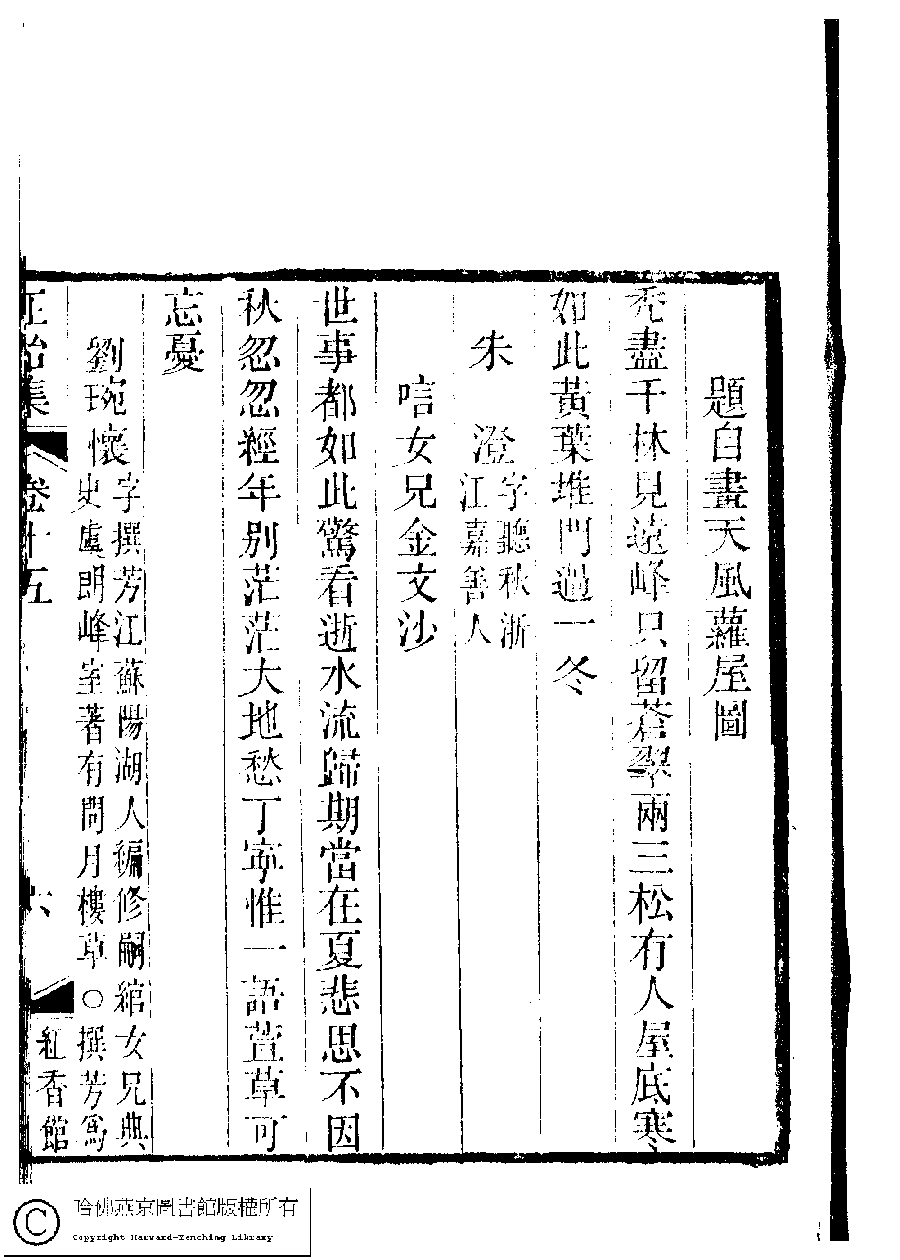 題自畫天風蘿屋圖
禿盡千林見遠峰只留蒼翠兩三松有人屋底寒
如此黃葉堆門過一冬
朱澄字聽秋浙江嘉善人
唁女兄金文沙
世事都如此驚看逝水流歸期當在夏悲思不因
秋忽忽經年別茫茫大地愁丁寧惟一語萱草可
忘憂
劉琬懷字撰芳江蘇陽湖人編修嗣綰女兄典
史虞朗峰室著有問月樓草○撰芳為
正始集 卷十五 六 紅香館
哈佛燕京圖書館版權所有
Copyright Harvard-Yenching Library